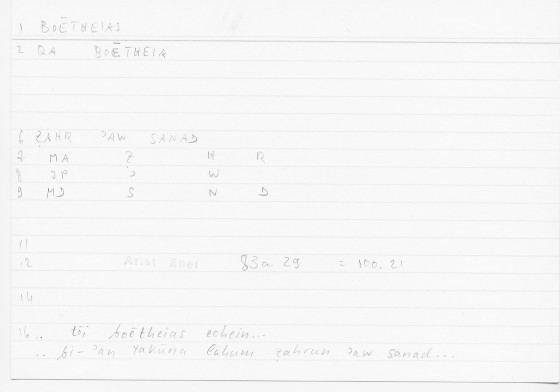 1 BOĒTHEIAS
2 QA BOĒTHEIA
6 ẒAHR ɔAW SANAD
7 MA Ẓ H R
8 JP ɔ W
9 MD S N D
11
12 Arist Rhet 83a 29 = 100.21
14
16 .. tōi boētheias echein...
.. bi-ɔan yakūna lahum ẓahrun ɔaw sanad...